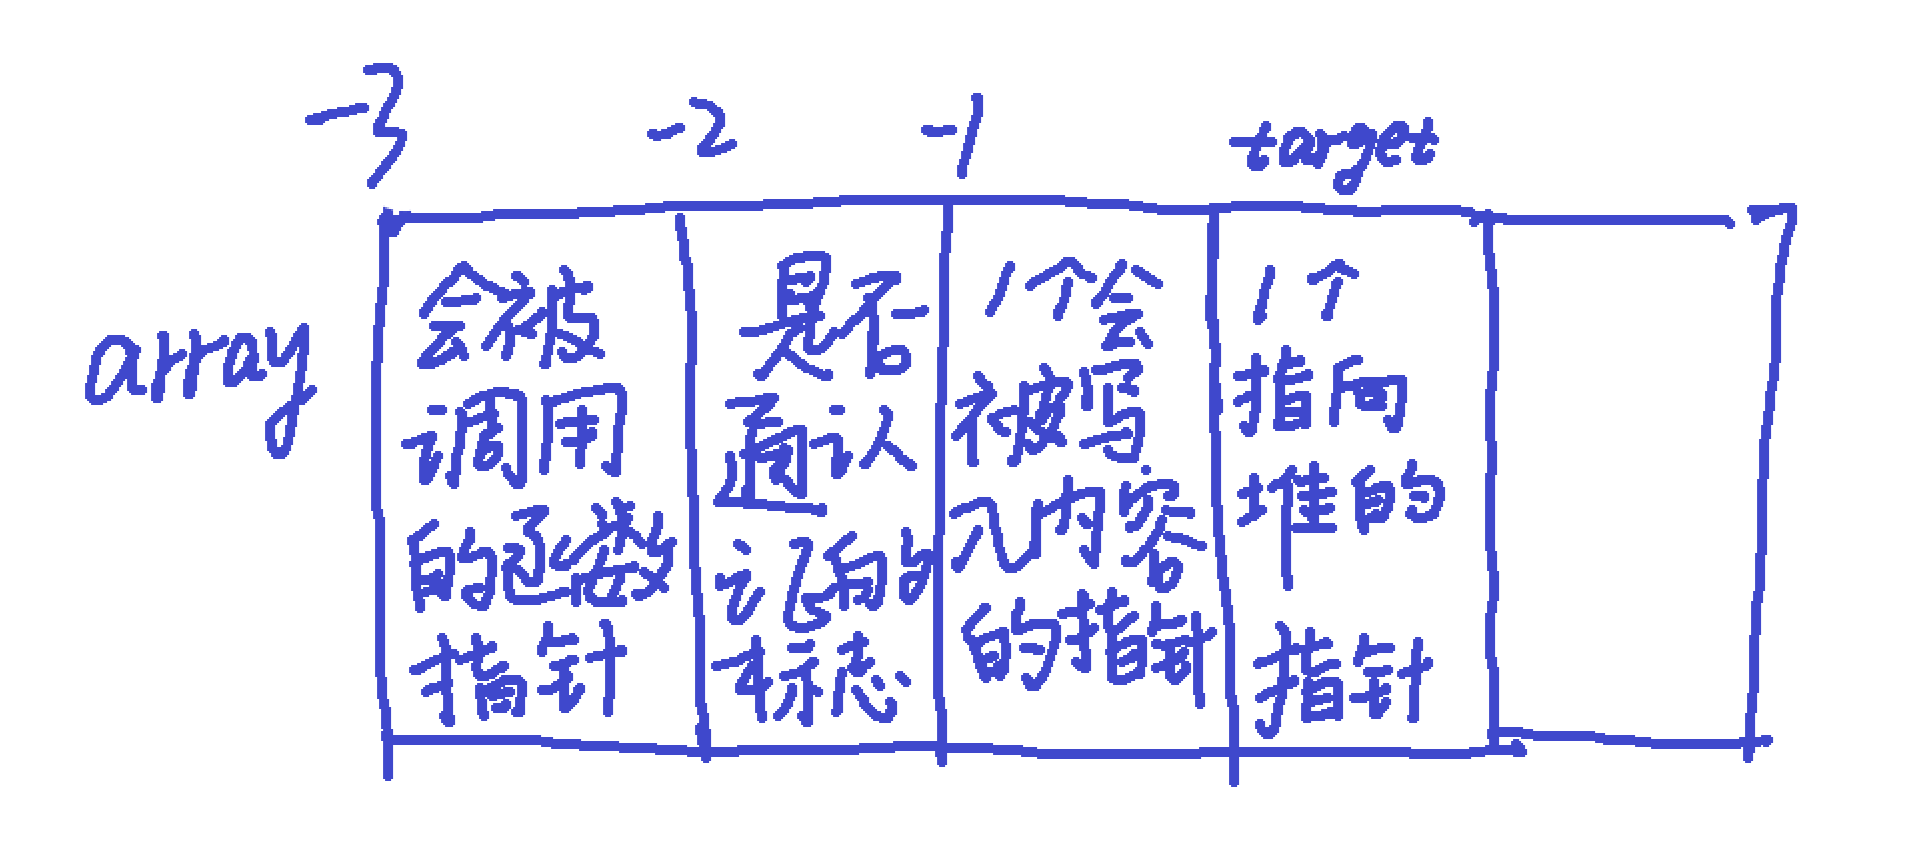 -3
-2
-1
target
array
会被
调用
的函数
指针
是否
通认
证的
标志
1个会
被写
入内容
的指针
1个
指向
堆的
指针